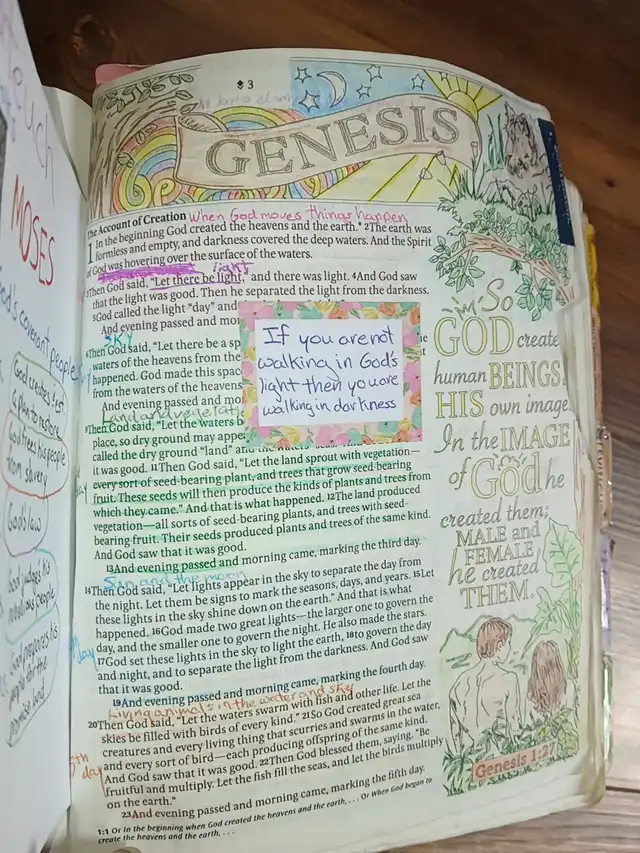 3
GENESIS
The Account of Creation When God moves things happen
1 In the beginning God created the heavens and the earth.* 2The earth was
formless and empty, and darkness covered the deep waters. And the Spirit
of God was hovering over the surface of the waters.
light
3Then God said, "Let there be light," and there was light. 4And God saw
that the light was good. Then he separated the light from the darkness.
5God called the light "day" and
And evening passed and
SKY
6Then God said, "Let there be a
waters of the heavens from the
happened. God made this
from the waters of the heavens
And evening passed and
Land
9Then God said, "Let the waters
place, so dry ground may
called the dry ground "land" and the waters
it was good. 11Then God said, "Let the land sprout with vegetation—
every sort of seed-bearing plant, and trees that grow seed-bearing
fruit. These seeds will then produce the kinds of plants and trees from
which they came." And that is what happened. 12The land produced
vegetation—all sorts of seed-bearing plants, and trees with seed-
bearing fruit. Their seeds produced plants and trees of the same kind.
And God saw that it was good.
13And evening passed and morning came, marking the third day.
Sun and the moon
14Then God said, "Let lights appear in the sky to separate the day from
the night. Let them be signs to mark the seasons, days, and years. 15Let
these lights in the sky shine down on the earth." And that is what
happened. 16God made two great lights—the larger one to govern the
day, and the smaller one to govern the night. He also made the stars.
17God set these lights in the sky to light the earth, 18to govern the day
and night, and to separate the light from the darkness. And God saw
that it was good.
19And evening passed and morning came, marking the fourth day.
Living animals in the water and sky
20Then God said, "Let the waters swarm with fish and other life. Let the
skies be filled with birds of every kind." 21So God created great sea
creatures and every living thing that scurries and swarms in the water,
and every sort of bird—each producing offspring of the same kind.
And God saw that it was good. 22Then God blessed them, saying, "Be
fruitful and multiply. Let the fish fill the seas, and let the birds multiply
on the earth."
23And evening passed and morning came, marking the fifth day.
1:1 Or In the beginning when God created the heavens and the earth, . . . Or When God began to
create the heavens and the earth, . . .
If you are not
walking in God's
light then you are
walking in darkness
So
GOD create
human BEINGS
HIS own image.
In the IMAGE
of God he
created them;
MALE and
FEMALE
he created
THEM.
Genesis 1:27
day
5th
day
MOSES
God's covenant people
God frees his people
from slavery
God's law
God judges his
rebellious people